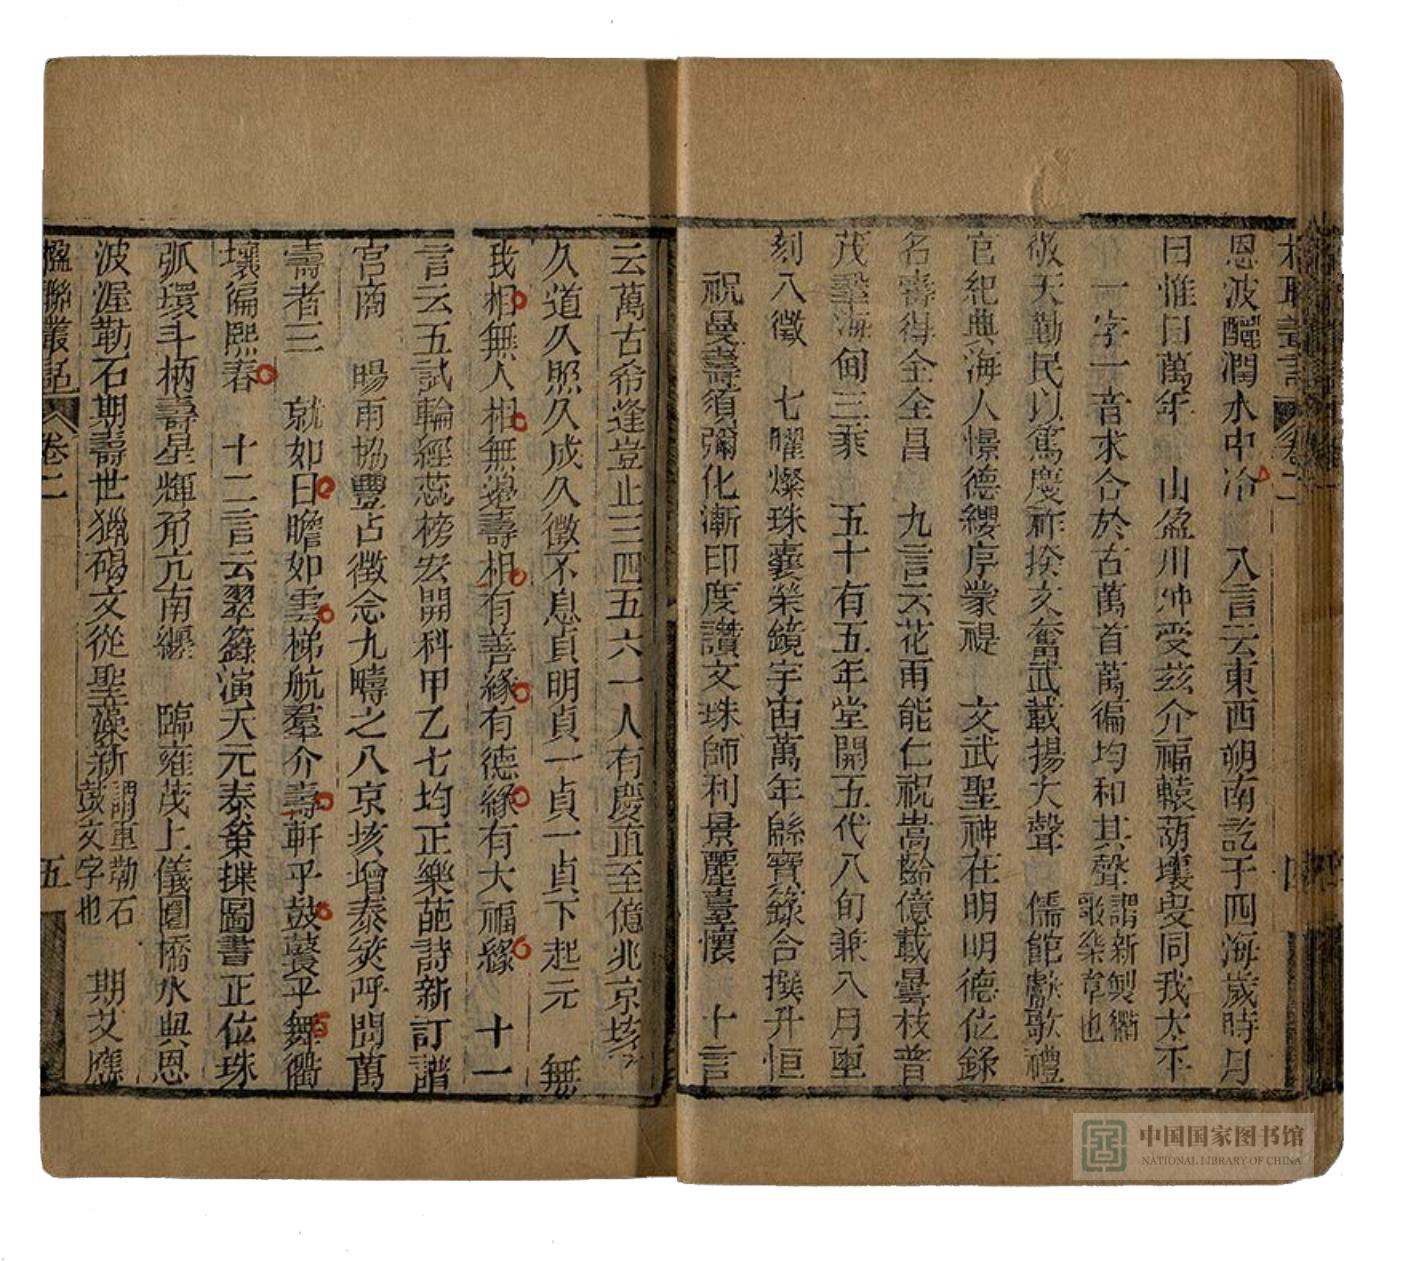 恩波醲潤水中冷　八言云東西朔南訖于四海歲時月
日惟曰萬年　山盈川冲受茲介福轅葫壤叟同我太平
一字一音求合於古萬首萬徧均和其聲謂新製衢歌樂章也
敬天勤民以篤慶祚揆文奮武載揚大聲　儒館獻歌禮
官紀典海人憬德纓序蒙禔　文武聖神在明明德位錄
名壽得全全昌　九言云花雨能仁祝嵩齡億載曇枝普
茂塈海甸三乘　五十有五年堂開五代八旬兼八月亜
刻八徵　七曜燦珠囊榮鏡宇宙萬年緜寶籙合撰升恒
祝曼壽須彌化漸印度讚文珠師利景麗臺懷　十言
云萬古希逢豈止三四五六一人有慶直至億兆京垓
久道久照久成久徵不息貞明貞一貞一貞下起元　無
我相無人相無邊壽相有善緣有德緣有大福緣　十一
言云五試輪經蕊榜宏開科甲乙七均正樂葩詩新訂譜
宮商　暘雨協豐占徵念九疇之八京垓增泰筴呼問萬
壽者三　就如日瞻如雲梯航羣介壽軒乎鼓鼚乎舞衢
壤徧熙春　十二言云翠籙演天元泰策揲圖書正位珠
弧環斗柄壽星輝角亢南纏　臨雍茂上儀圜橋水與恩
波渥勒石期壽世獵碣文從聖藻新謂重勒石鼓文字也　期艾應
楹聯叢話　卷二　五